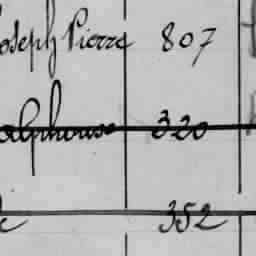 Joseph Pierre 807
alphonse 320
352